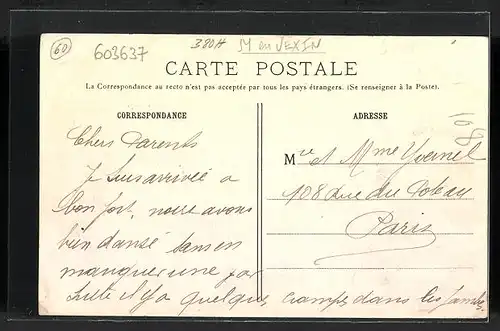 60
603637
380H
St en VEXIN
CARTE POSTALE
La Correspondance au recto n'est pas acceptée par tous les pays étrangers. (Se renseigner à la Poste).
CORRESPONDANCE
ADRESSE
108
Chers Parents
Je suis arrivée a
bon port, nous avons
bien dansé sans en
manquer une par
suite il y a quelques crampes dans les jambes.
Mr et Mme Yvernel
108 rue du Poteau
Paris